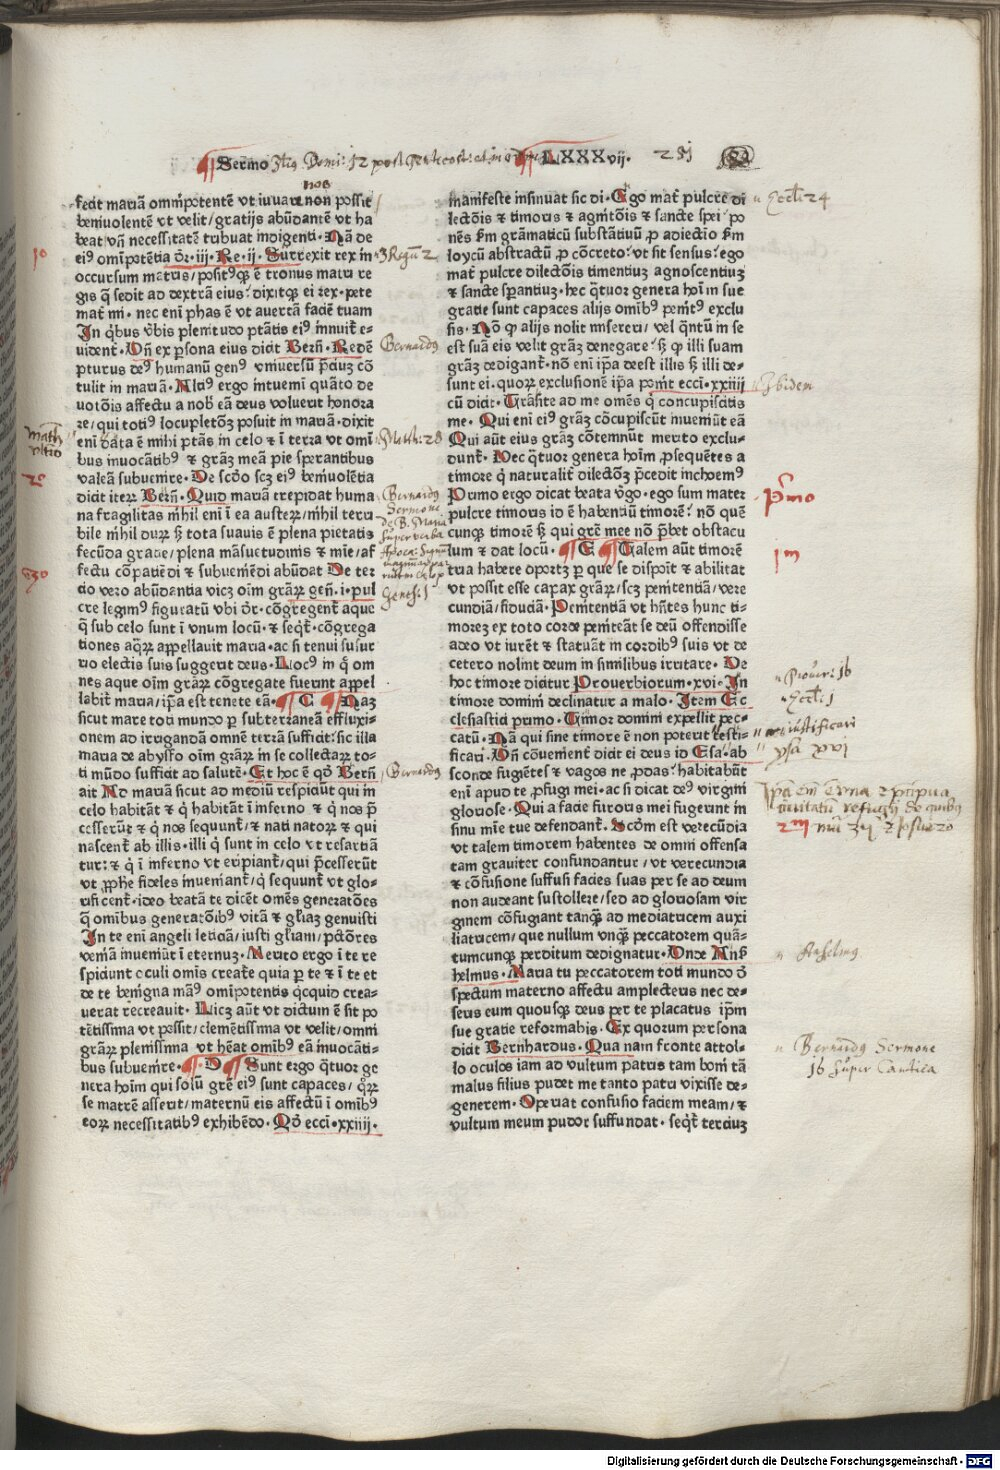 Sermo 3us Domi: 12 post Pentecost: LXXXvij. 251
fecit mariā omnipotentē vt iuuare non possit
beniuolentē vt velit/ gratijs abūdantē vt ha
beat vn̄ necessitatē tribuat indigenti. Nā de
eiꝰ omīpotētia dr̄. iij. Re. ij. Surrexit rex in
occursum matris/ positꝰqꝫ ē tronus matri re
gis q̄ sedit ad dextrā eius. dixitqꝫ ei rex. pete
mat̄ mi. nec eni phas ē vt auertā faciē tuam
In q̇bus v̄bis plenitudo ptātis eiꝰ innuit̄ e-
uident̄. Vn̄ ex p̱sona eius dicit Bern̄. Redē
pturus deꝰ humanū genꝰ vniuersū p̄ciuꝫ cō
tulit in mariā. Altiꝰ ergo intuemi quāto de
uotōis affectu a nob̄ eā deus voluerit honora
re/ qui totiꝰ locupletōꝫ posuit in mariā. dixit
eni data ē mihi ptās in celo ⁊ ī terra vt omi
bus inuocātibꝰ ⁊ grāꝫ meā pie sperantibus
valeā subuenire. De scd̄o scꝫ eiꝰ beniuolētia
dicit iterꝝ Bern̄. Quid mariā trepidat huma
na fragilitas nihil eni ī ea austerꝝ/ nihil terri
bile nihil durꝝ sꝫ tota suauis ē plena pietatis
fecūda gratie/ plena māsuetudinis ⁊ mīe/ af
fectu cōpatiēdi ⁊ subueniēdi abūdat De ter
cio vero abūdantia viciꝫ oīm grāꝝ gen̄. i. pul
cre legimꝰ figuratū vbi dr̄. cōgregent̄ aque
q̄ sub celo sunt ī vnum locū. ⁊ seqt̄. cōgrega
tiones aq̄ꝝ appellauit maria. ac si tenui susur
rio electis suis suggerit deus. Locꝰ in q̄ om
nes aque oīm grāꝝ cōgregate fuerunt appel
labit̄ maria/ ip̄a est tenete eā. ¶ C ¶ Naꝫ
sicut mare toti mundo p̱ subterraneā effluxi-
onem ad irrigandā omnē terrā sufficit. sic illa
maria de abysso oīm grāꝝ in se collectaꝝ to-
ti mūdo sufficit ad salutē. Et hoc ē qd̄ Bern̄
ait Ad mariā sicut ad mediū respiciūt qui in
celo habitāt ⁊ q̇ habitāt ī inferno ⁊ q̇ nos p̄
cesserūt ⁊ q̇ nos sequunt̄/ ⁊ nati natoꝝ ⁊ qui
nascent̄ ab illis. illi q̇ sunt in celo vt resartiā
tur: ⁊ q̇ ī inferno vt eripiant̄/ qui p̄cesserūt
vt p̱phe fideles inueniant̄/ q̇ sequunt̄ vt glo-
rificent̄. ideo beatā te dicēt omēs generatōes
q̄ omībus generatōibꝰ vitā ⁊ gl̄iaꝫ genuisti
In te eni angeli leticiā/ iusti gl̄iam/ pctōres
veniā inueniūt ī eternuꝫ. Merito ergo ī te re
spiciunt oculi omīs creat̄e quia per te ⁊ ī te et
de te benigna manꝰ omīpotentis q̇cquid crea-
uerat recreauit. Licꝫ aūt vt dictum ē sit po
tētissima vt possit/ clemētissima vt velit/ omni
grāꝝ plenissima vt hēat omibꝰ eā inuocāti-
bus subuenire. ¶ D ¶ Sunt ergo q̇tuor ge
nera hoīm qui solū grē eiꝰ sunt capaces/ q̇ꝝ
se matrē asserit/ maternū eis affectū ī omībꝰ
eoꝝ necessitatibꝰ exhibēdo. Qd̄ ecci. xxiiij.
manifeste insinuat sic di. Ego mat̄ pulcre di
lectōis ⁊ timoris ⁊ agnitōis ⁊ sancte spei ꝓpo
nēs s̄m grāmaticū substātiuū ꝓ adiectio s̄m
loycū abstractū ꝓ cōcreto. vt sit sensus. ego
mat̄ pulcre dilectōis timentiuꝫ agnoscentiuꝫ
⁊ sancte sp̱antiuꝫ. hec q̇tuor genera hoīm sue
gratie sunt capaces alijs omībꝰ penitꝰ exclu
sis. Nō ꝙ alijs nolit misereri/ vel q̇ntū in se
est suā eis velit grāꝫ denegare. sꝫ ꝙ illi suam
grāꝫ dedignant̄. nō eni ip̄a deest illis sꝫ illi de-
sunt ei. quoꝝ exclusionē ip̄a ponit ecci. xxiiij
cū dicit. Trāsite ad me omēs q̇ concupiscitis
me. Qui eni eiꝰ grāꝫ cōcupiscūt inueniūt eā
Qui aūt eius grāꝫ cōtemnūt merito exclu-
dunt̄. Nec q̇tuor genera hoīm ꝓsequētes a
timore q̇ naturalit̄ dilectōꝫ p̄cedit inchoemꝰ
Primo ergo dicat beata v̄go. ego sum mater
pulcre timoris id ē habentiū timorē. nō quē
cunqꝫ timorē sꝫ qui grē mee nō p̄bet obstacu
lum ⁊ dat locū. ¶ E ¶ Talem aūt timorē
tria habere oportꝫ p̱ que se disponit ⁊ abilitat
vt possit esse capax grāꝝ/ scꝫ penitentiā/ vere
cundiā/ fiduciā. Penitentiā vt hn̄tes hunc ti-
moreꝫ ex toto corde peniteāt se deū offendisse
adeo vt iurēt ⁊ statuāt in cordibꝰ suis vt de
cetero nolint deum in similibus irritare. De
hoc timore dicitur Prouerbiorum. xvi. In
timore domini declinatur a malo. Item Ec
clesiastici primo. Timor domini expellit pec-
catū. Nā qui sine timore ē non poterit testi-
ficari. Vn̄ cōuenient̄ dicit ei deus id Esa. ab
sconde fugiētes ⁊ vagos ne ꝓdas. habitabūt
eni apud te ꝓfugi mei. ac si dicat deꝰ virgini
gloriose. Qui a facie furoris mei fugerint in
sinu mīe tue defendant̄. Scd̄m est verecūdia
vt talem timorem habentes de omni offensa
tam grauiter confundantur/ vt verecundia
⁊ cōfusione suffusi facies suas per se ad deum
non audeant sustollere/ sed ad gloriosam vir
ginem cōfugiant tanqꝫ ad mediatricem auxi
liatricem/ que nullum vnqꝫ peccatorem quā-
tumcunqꝫ perditum dedignatur. Vnde Ans
helmus. Maria tu peccatorem toti mundo d̄
spectum materno affectu amplecteris nec de-
seris eum quousqꝫ deus per te placatus ip̄m
sue gratie reformabis. Ex quorum persona
dicit Bernhardus. Qua nam fronte attol-
lo oculos iam ad vultum patris tam boni tā
malus filius pudet me tanto patri vixisse de-
generem. Operiat confusio faciem meam/ ⁊
vultum meum pudor suffundat. seqt̄ terciuꝫ
3 Regū 2
Bernardꝰ
Matth: 28
Bernardꝰ
Sermone
de B. Maria
super verba
Apoca: Signū
magnum
Genes: 1
Bernardꝰ
Eccli 24
Ibidem
Primo
1m
Prouer: 16
Eccli: 1
iustificari
ysa xvi
Anshelmꝰ
Bernardꝰ Sermone
16 super Cantica
Digitalisierung gefördert durch die Deutsche Forschungsgemeinschaft - DFG